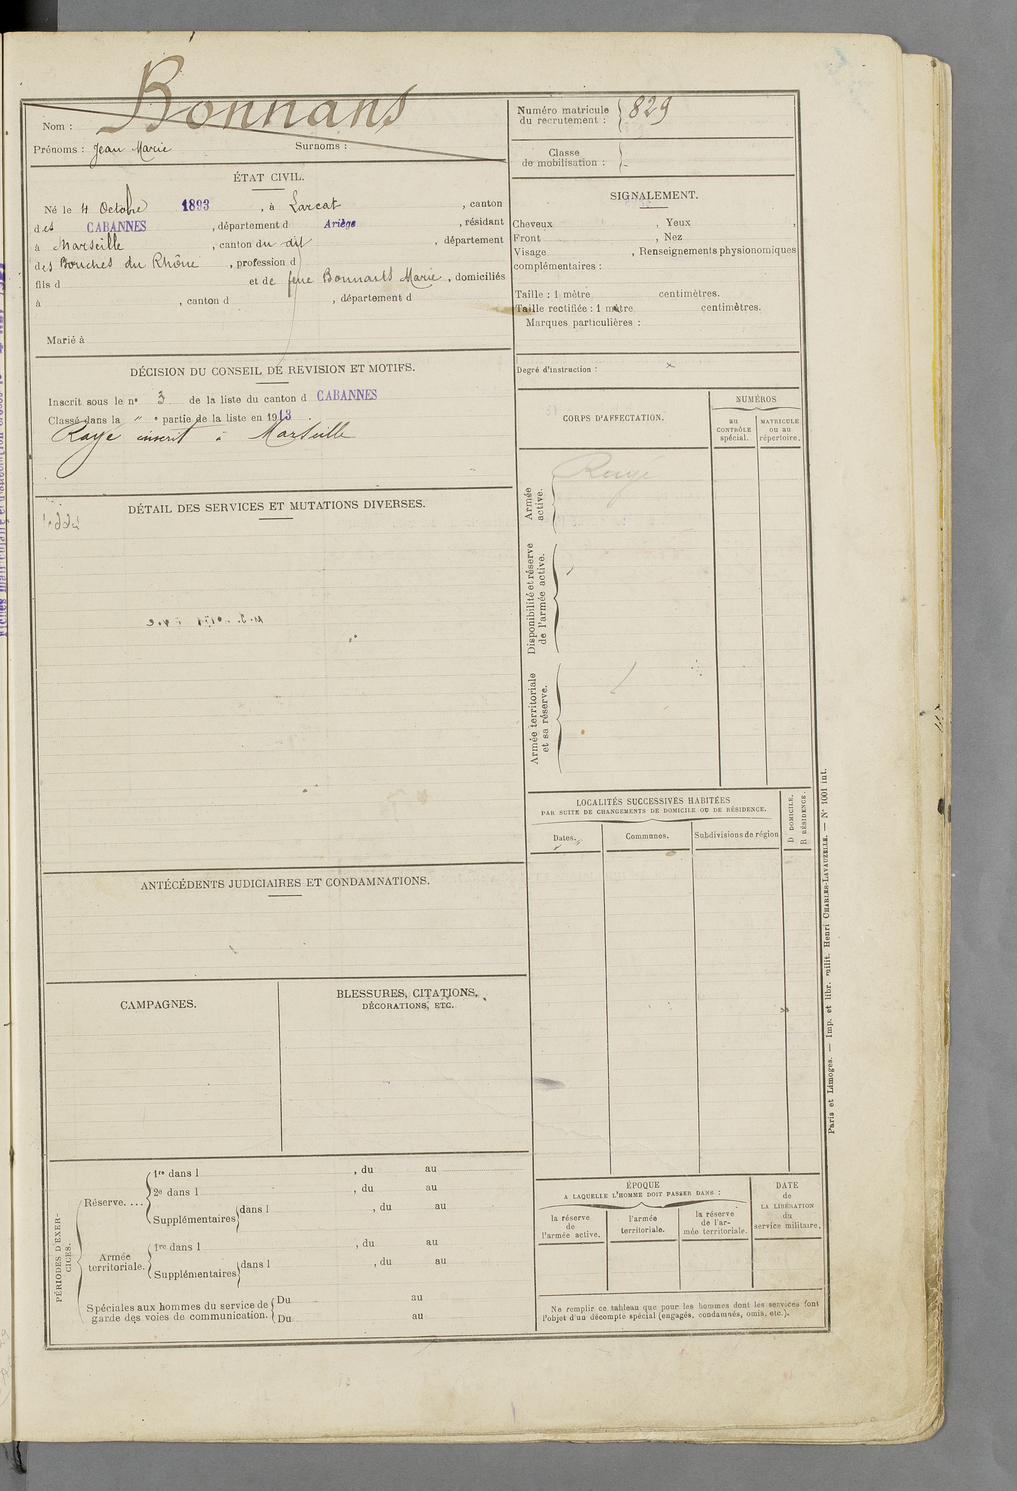 Bonnans
Nom :
Prénoms : Jean Marie Surnoms :
Numéro matricule du recrutement : 829
Classe de mobilisation :
ÉTAT CIVIL.
Né le 4 Octobre 1893, à Larcat, canton
des CABANNES, département d Ariège, résidant
à Marseille, canton du dit, département
des Bouches du Rhône, profession d
fils d et de feue Bonnans Marie, domiciliés
à , canton d , département d
Marié à
SIGNALEMENT.
Cheveux , Yeux ,
Front , Nez
Visage , Renseignements physionomiques
complémentaires :
Taille : 1 mètre centimètres.
Taille rectifiée : 1 mètre centimètres.
Marques particulières :
Degré d'instruction :
DÉCISION DU CONSEIL DE REVISION ET MOTIFS.
Inscrit sous le n° 3 de la liste du canton d CABANNES
Classé dans la " e partie de la liste en 1913.
Rayé inscrit à Marseille
CORPS D'AFFECTATION.
NUMÉROS
au CONTRÔLE spécial.
MATRICULE ou au répertoire.
Armée active.
Rayé
Disponibilité et réserve de l'armée active.
Armée territoriale et sa réserve.
DÉTAIL DES SERVICES ET MUTATIONS DIVERSES.
LOCALITÉS SUCCESSIVES HABITÉES
PAR SUITE DE CHANGEMENTS DE DOMICILE OU DE RÉSIDENCE.
Dates. Communes. Subdivisions de région
D DOMICILE.
R RÉSIDENCE.
ANTÉCÉDENTS JUDICIAIRES ET CONDAMNATIONS.
CAMPAGNES.
BLESSURES, CITATIONS,
DÉCORATIONS, ETC.
PÉRIODES D'EXERCICES.
Réserve....
1re dans l , du au
2e dans l , du au
Supplémentaires dans l , du au
Armée territoriale.
1re dans l , du au
Supplémentaires dans l , du au
Spéciales aux hommes du service de garde des voies de communication.
Du au
Du au
ÉPOQUE
A LAQUELLE L'HOMME DOIT PASSER DANS :
la réserve de l'armée active.
l'armée territoriale.
la réserve de l'armée territoriale.
DATE de LA LIBÉRATION du service militaire.
Ne remplir ce tableau que pour les hommes dont les services font
l'objet d'un décompte spécial (engagés, condamnés, omis, etc.).
Paris et Limoges. — Imp. et libr. milit. Henri CHARLES-LAVAUZELLE. — N° 1001 int.